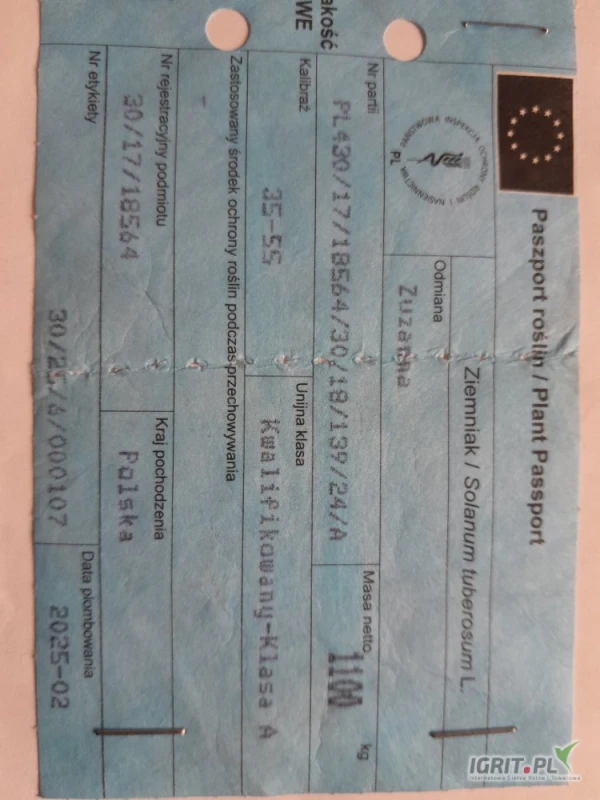 akość
WE
Paszport roślin / Plant Passport
PAŃSTWOWA INSPEKCJA OCHRONY ROŚLIN I NASIENNICTWA
PL
Ziemniak / Solanum tuberosum L.
Odmiana
Zuzanna
Nr partii
PL430/17/18564/30/18/139/24/A
Masa netto
1100 kg
Kalibraż
35-55
Unijna klasa
Kwalifikowany-Klasa A
Zastosowany środek ochrony roślin podczas przechowywania
-
Nr rejestracyjny podmiotu
30/17/18564
Kraj pochodzenia
Polska
Nr etykiety
30/25/4/000107
Data plombowania
2025-02
IGRIT.PL